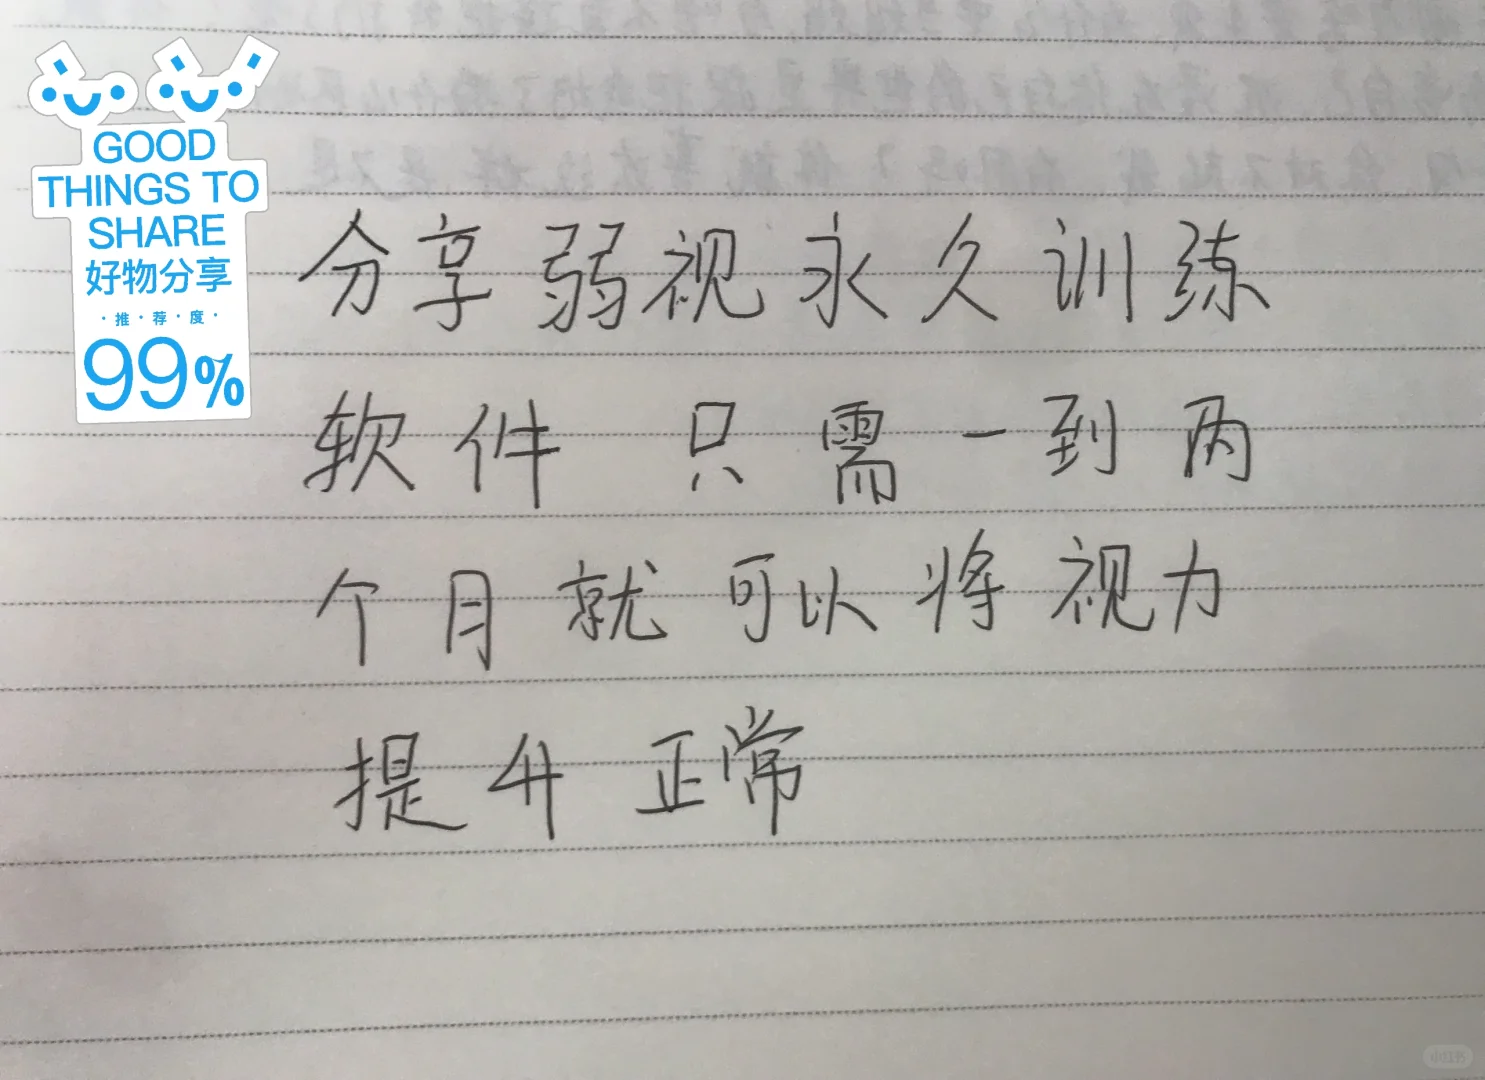 GOOD
THINGS TO
SHARE
好物分享
·推·荐·度·
99%
分享弱视永久训练
软件 只需一到两
个月就可以将视力
提升正常
小红书